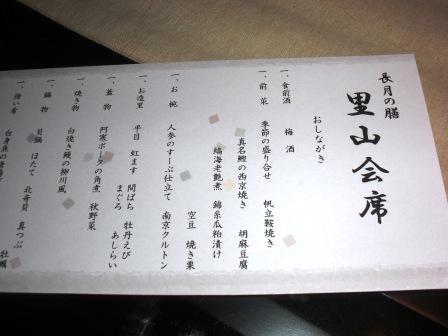 長月の膳
里山会席
おしながき
一、食前酒 梅酒
一、前菜 季節の盛り合せ 帆立鞍焼き
真名鰹の西京焼き 胡麻豆腐
縞海老艶煮 錦糸瓜粕漬け
空豆 焼き栗
一、お椀 人参のすーぷ仕立て 南京クルトン
一、お造里 平目 虹ます 間ぱち 牡丹えび
まぐろ あしらい
一、蓋物 阿寒ポークの角煮 秋野菜
一、焼き物 白焼き鰻の柳川風
一、鍋物 貝鍋 ほたて 北寄貝 真つぶ
牡蠣
一、強い肴 白身魚の